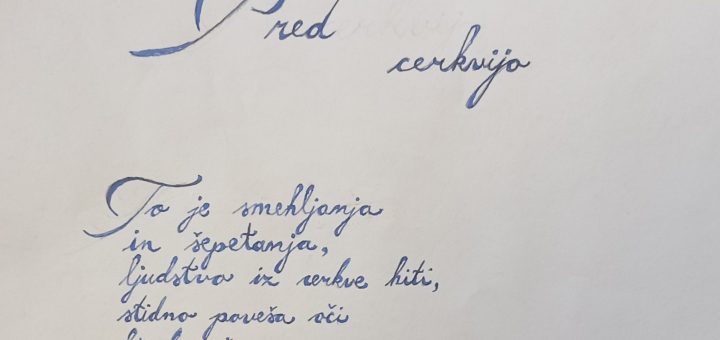 Pred
cerkvijo
To je smehljanja
in šepetanja,
ljudstvo iz cerkve hiti,
stidno poveša oči